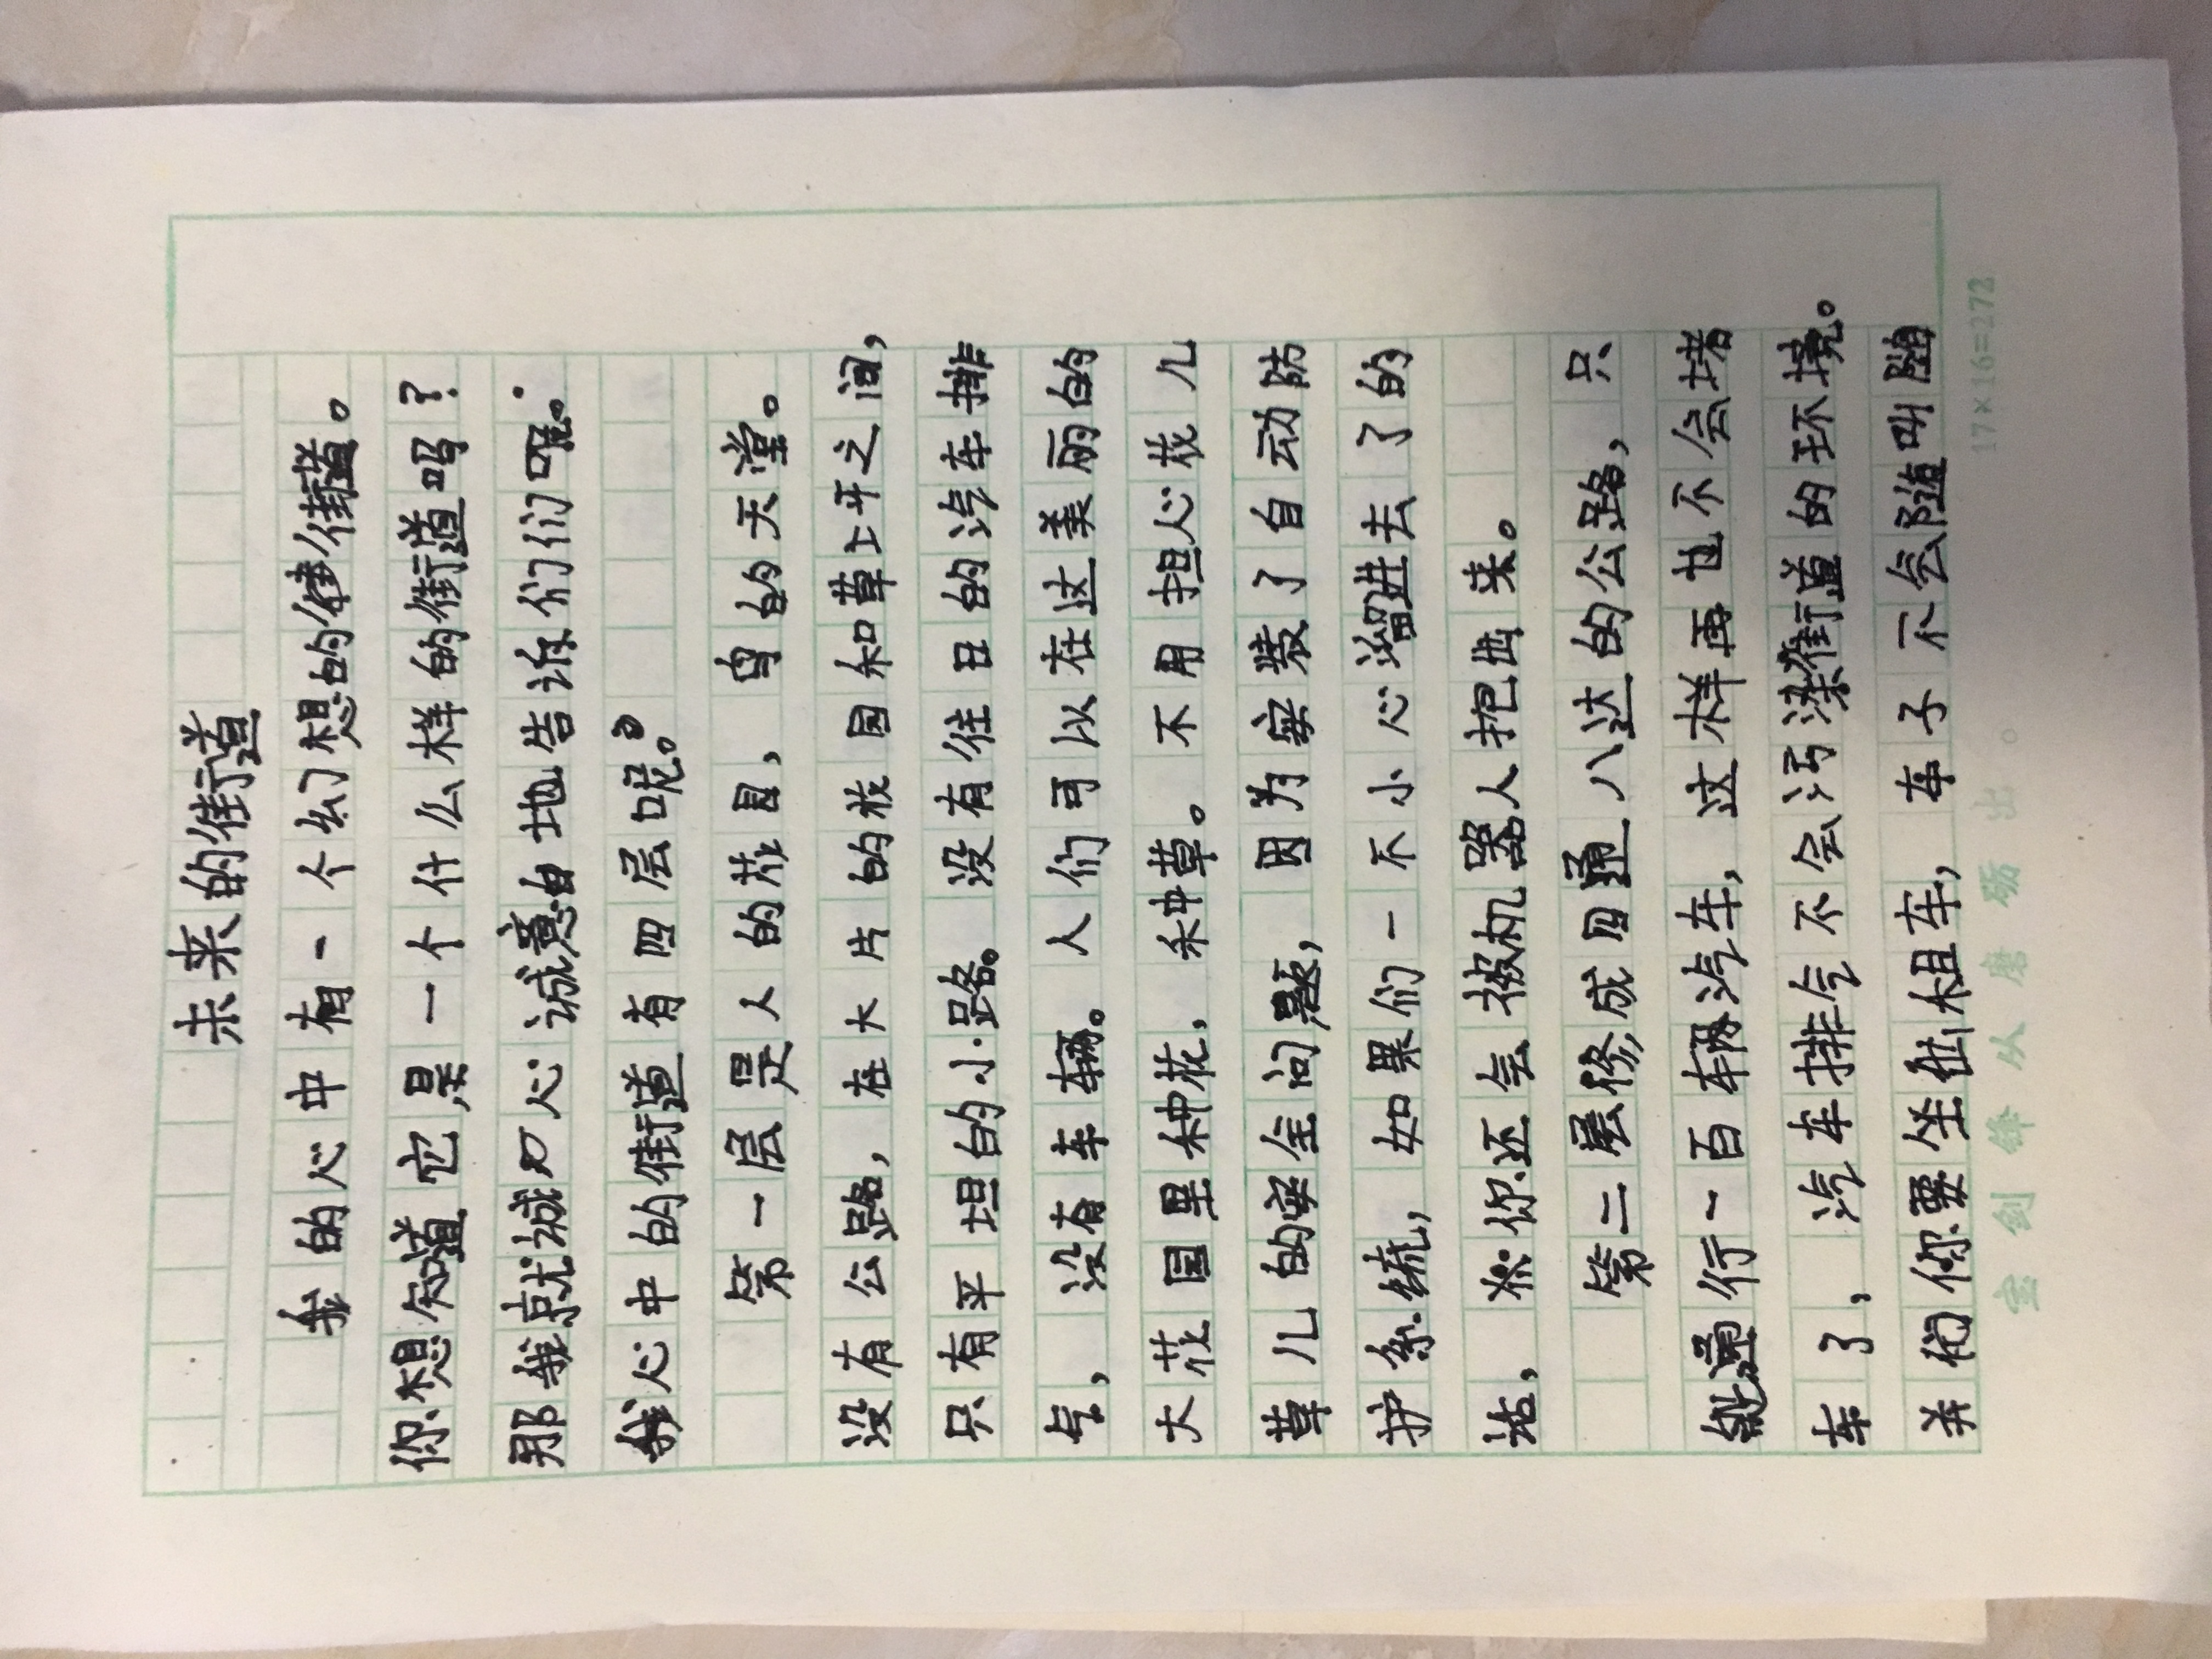 未来的街道
我的心中有一个幻想的街道。
你想知道它是一个什么样的街道吗？
那我就诚心诚意自地告诉你们们呢。
我心中的街道有四层呢。
第一层是人的花园，鸟的天堂。
没有公路，在大片的花园和草上平之间，
只有平坦的小路。没有往日的汽车排
气，没有车辆。人们可以在这美丽的
大花园里种花，种草。不用担心花儿
草儿的安全问题，因为安装了自动防
护系统，如果们一不小心溜进去了的
话，你还会被机器人抱出来。
第二层修成四通八达的公路，只
能通行一百辆汽车，这样再也不会堵
车了，汽车排气不会污染街道的环境。
并们你要坐出租车，车子不会随叫随
宝剑锋从磨砺出。
17×16=272